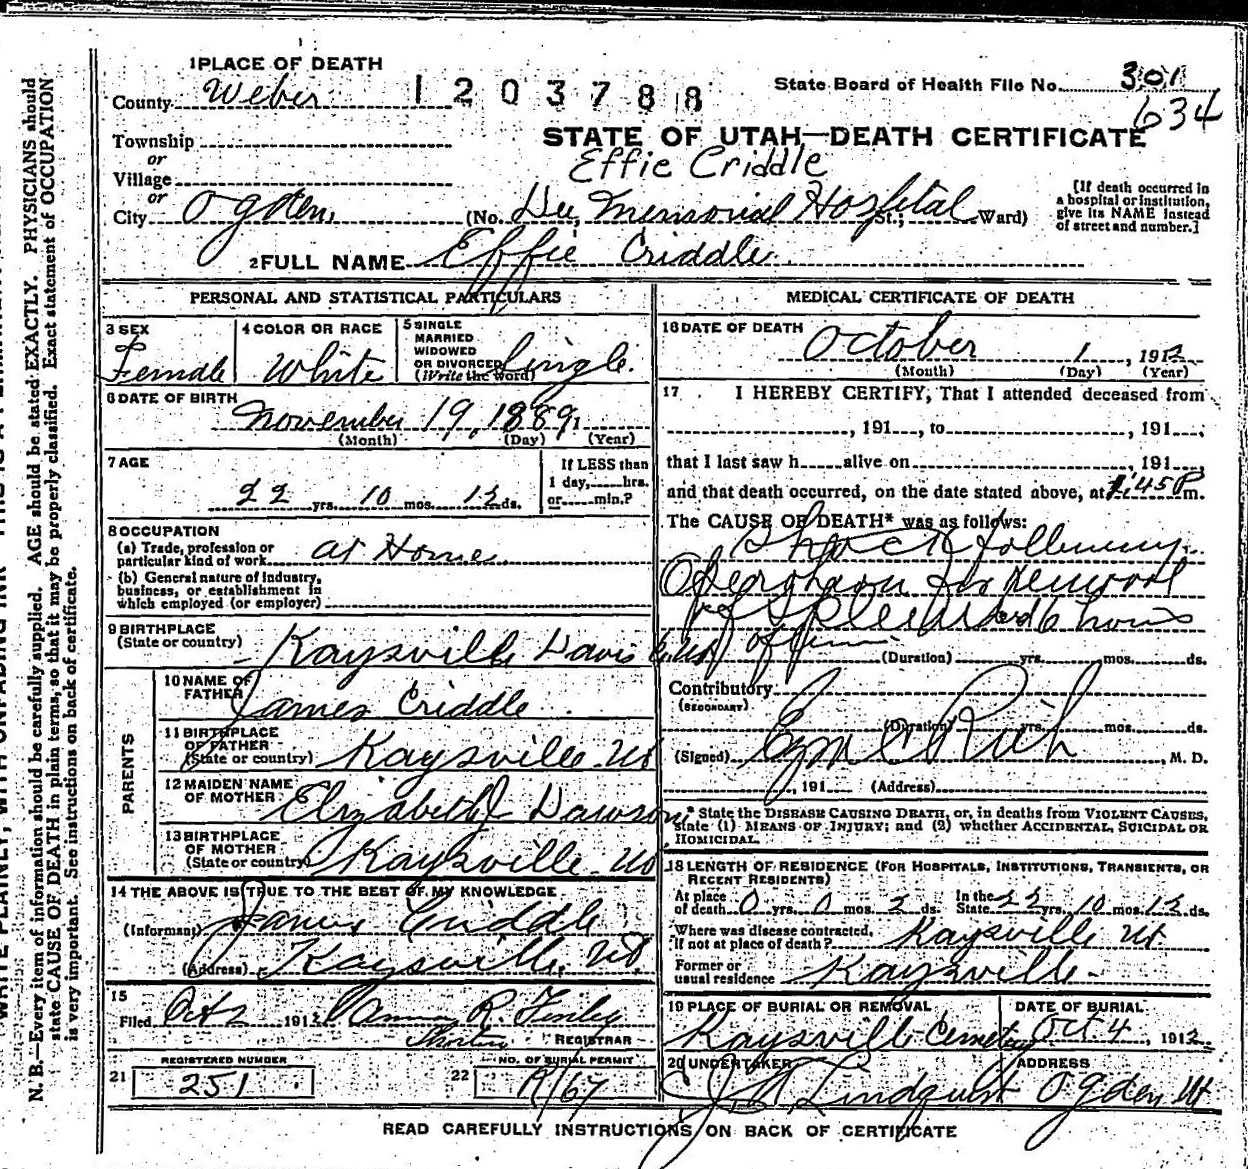 1 PLACE OF DEATH
County Weber
1203788
State Board of Health File No. 301
634
Township
or
Village
or
City Ogden
STATE OF UTAH—DEATH CERTIFICATE
Effie Criddle
(No. Dee Memorial Hospital St.; Ward)
[If death occurred in
a hospital or institution,
give its NAME instead
of street and number.]
2 FULL NAME Effie Criddle
PERSONAL AND STATISTICAL PARTICULARS
3 SEX
Female
4 COLOR OR RACE
White
5 SINGLE
MARRIED
WIDOWED
OR DIVORCED
(Write the word)
Single
6 DATE OF BIRTH
November 19, 1889
(Month) (Day) (Year)
7 AGE
22 yrs. 10 mos. 12 ds.
If LESS than
1 day, hrs.
or min.?
8 OCCUPATION
(a) Trade, profession or
particular kind of work at Home
(b) General nature of industry,
business, or establishment in
which employed (or employer)
9 BIRTHPLACE
(State or country) Kaysville Davis
10 NAME OF
FATHER James Criddle
PARENTS
11 BIRTHPLACE
OF FATHER
(State or country) Kaysville Ut
12 MAIDEN NAME
OF MOTHER Elizabeth J Dawson
13 BIRTHPLACE
OF MOTHER
(State or country) Kaysville Ut
14 THE ABOVE IS TRUE TO THE BEST OF MY KNOWLEDGE
(Informant) James Criddle
(Address) Kaysville, Ut.
15
Filed Oct 2 1912 R. Finley
REGISTRAR
REGISTERED NUMBER
21 251
NO. OF BURIAL PERMIT
22 R/67
MEDICAL CERTIFICATE OF DEATH
16 DATE OF DEATH
October 1, 1912
(Month) (Day) (Year)
17 I HEREBY CERTIFY, That I attended deceased from
, 191 , to , 191
that I last saw h alive on , 191
and that death occurred, on the date stated above, at 1:45 P m.
The CAUSE OF DEATH* was as follows:
Shock following
Operation for removal
of Spleen lived 6 hours
(Duration) yrs. mos. ds.
Contributory
(SECONDARY)
(Duration) yrs. mos. ds.
(Signed) Ezra C Rich, M. D.
, 191 (Address)
* State the DISEASE CAUSING DEATH, or, in deaths from VIOLENT CAUSES,
state (1) MEANS OF INJURY; and (2) whether ACCIDENTAL, SUICIDAL OR
HOMICIDAL.
18 LENGTH OF RESIDENCE (FOR HOSPITALS, INSTITUTIONS, TRANSIENTS, OR
RECENT RESIDENTS)
At place
of death 0 yrs. 0 mos. 2 ds.
In the
State 22 yrs. 10 mos. 12 ds.
Where was disease contracted,
if not at place of death? Kaysville Ut
Former or
usual residence Kaysville
19 PLACE OF BURIAL OR REMOVAL
Kaysville Cemetery
DATE OF BURIAL
Oct. 4, 1912
20 UNDERTAKER
Lindquist
ADDRESS
Ogden Ut
READ CAREFULLY INSTRUCTIONS ON BACK OF CERTIFICATE
N. B.—Every item of information should be carefully supplied. AGE should be stated EXACTLY. PHYSICIANS should
state CAUSE OF DEATH in plain terms, so that it may be properly classified. Exact statement of OCCUPATION
is very important. See instructions on back of certificate.